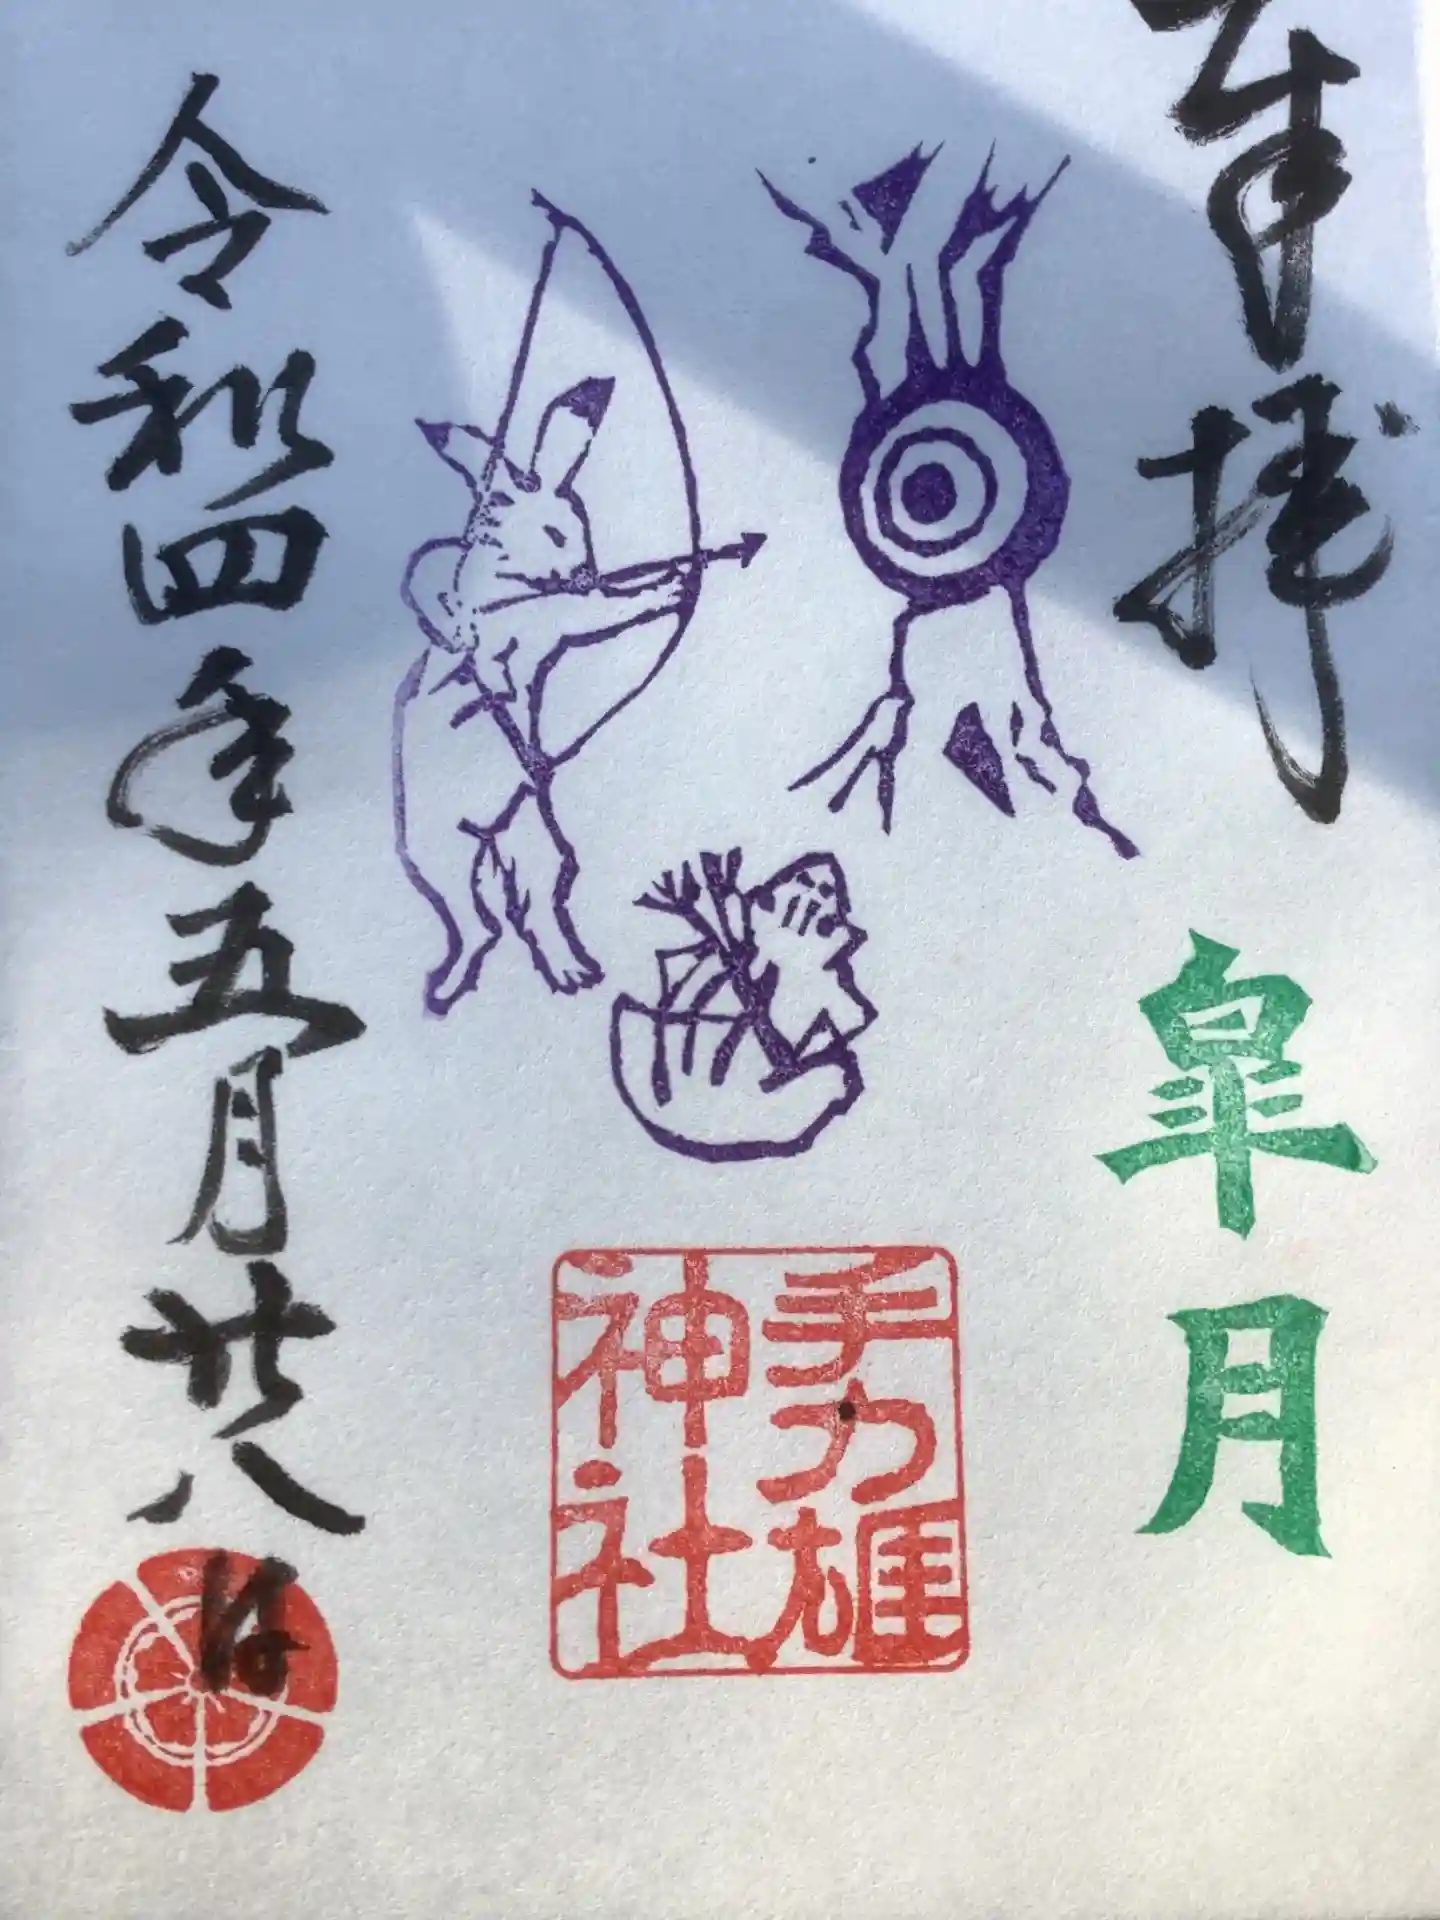 奉拝
皐月
手力雄
神社
令和四年五月廿八日